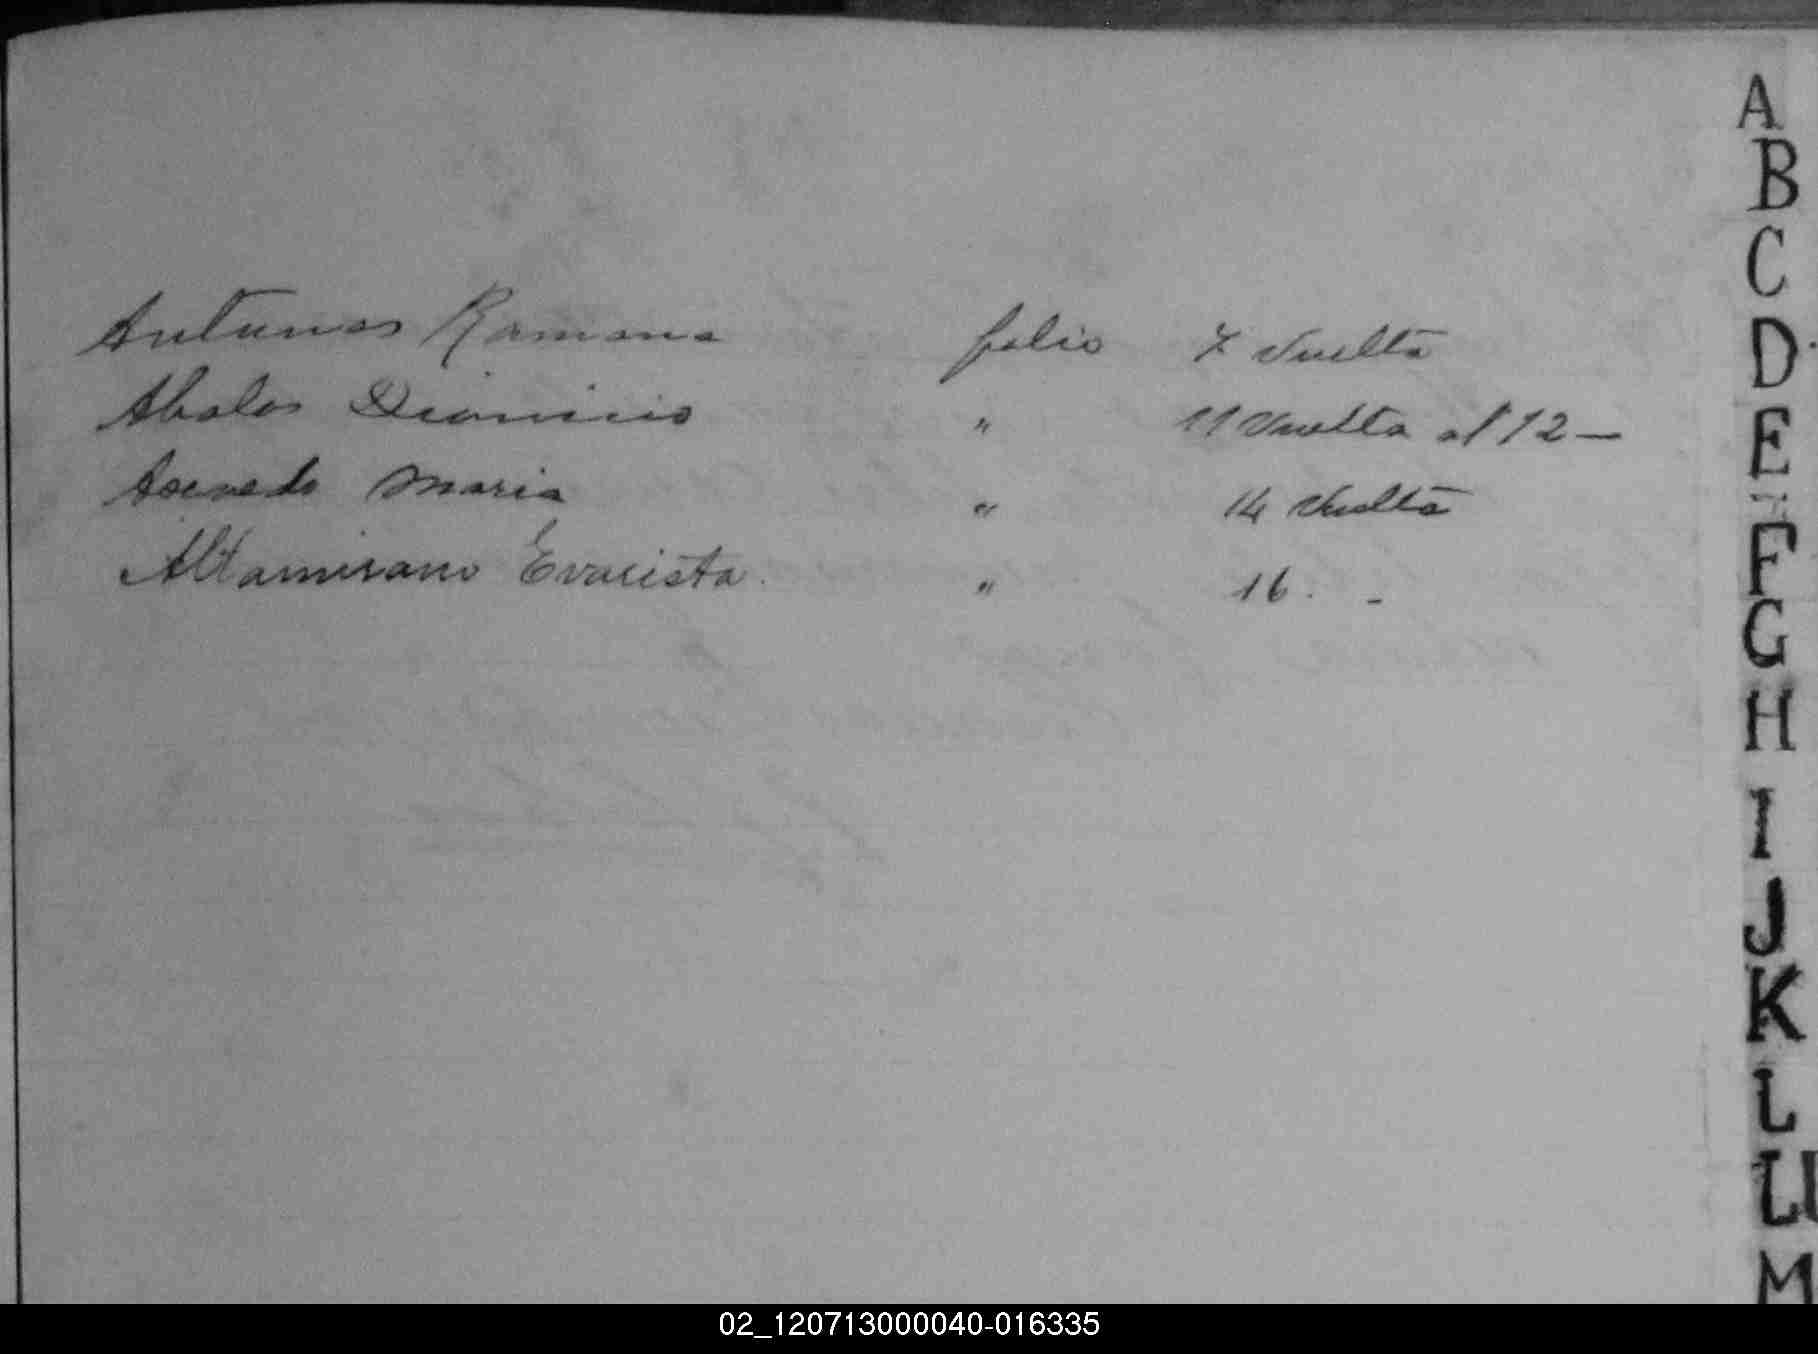 Antunes Ramona folio 7 vuelta
Abalos Dionicio " 11 vuelta al 12 —
Asevedo Maria " 14 vuelta
Altamirano Evarista. " 16. -
A
B
C
D
E
F
G
H
I
J
K
L
LL
M
02_120713000040-016335